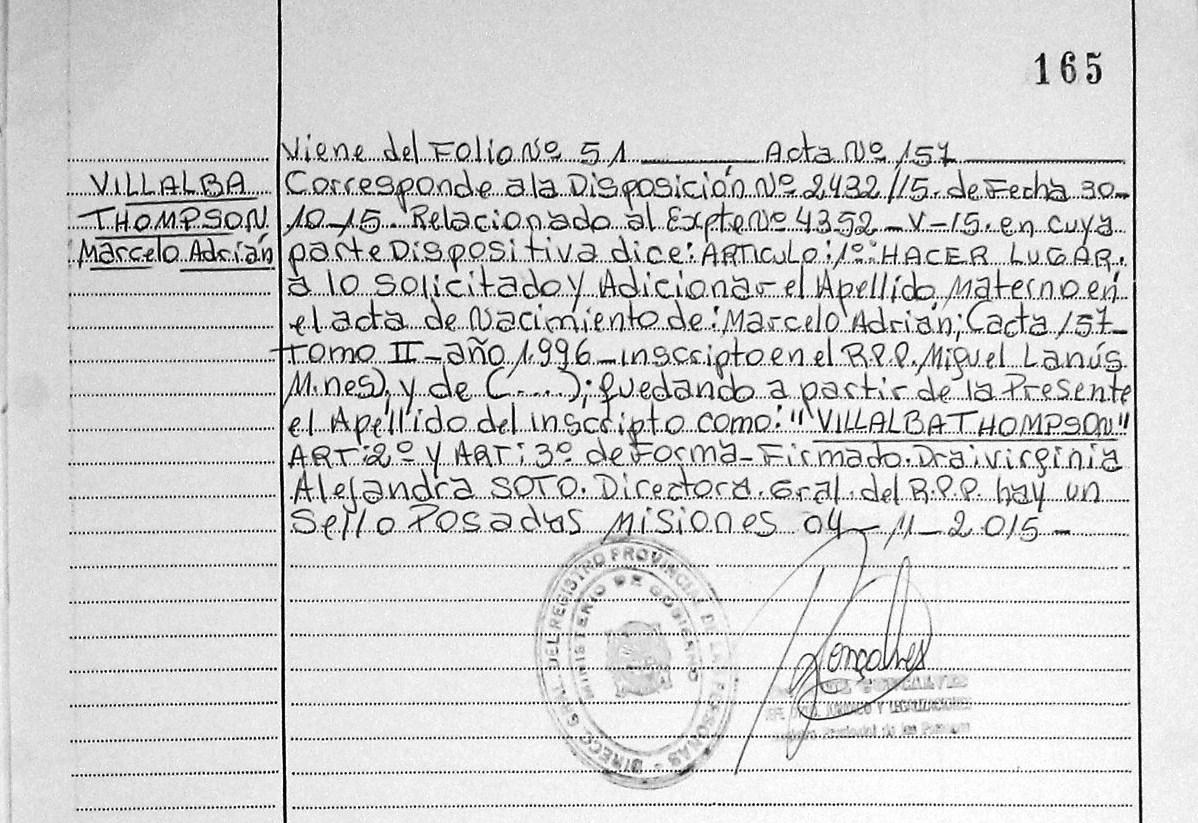 165
Viene del Folio Nº 51 Acta Nº 157
VILLALBA
THOMPSON
Marcelo Adrián
Corresponde a la Disposición Nº 2432/15. de Fecha 30-
10-15. Relacionado al Expte Nº 4352-V-15. en cuya
parte Dispositiva dice: ARTICULO: 1º: HACER LUGAR.
a lo solicitado y Adicionar el Apellido Materno en
el acta de Nacimiento de: Marcelo Adrián; (acta 157-
tomo II-año 1996-inscripto en el R.P.P. Miguel Lanús
Mnes), y de (....); quedando a partir de la Presente
el Apellido del inscripto como: "VILLALBA THOMPSON"
ART: 2º y ART: 3º de Forma-Firmado. Dra. virginia
Alejandra SOTO. Directora. Gral. del R.P.P. hay un
Sello Posadas Misiones 04-11-2015-
DIRECC. GRAL. DEL REGISTRO PROVINCIAL DE LAS PERSONAS
MINISTERIO DE GOBIERNO
Gonçalves
GONCALVES
JURIDICO Y LEGALIZACIONES
Provincial de las Personas